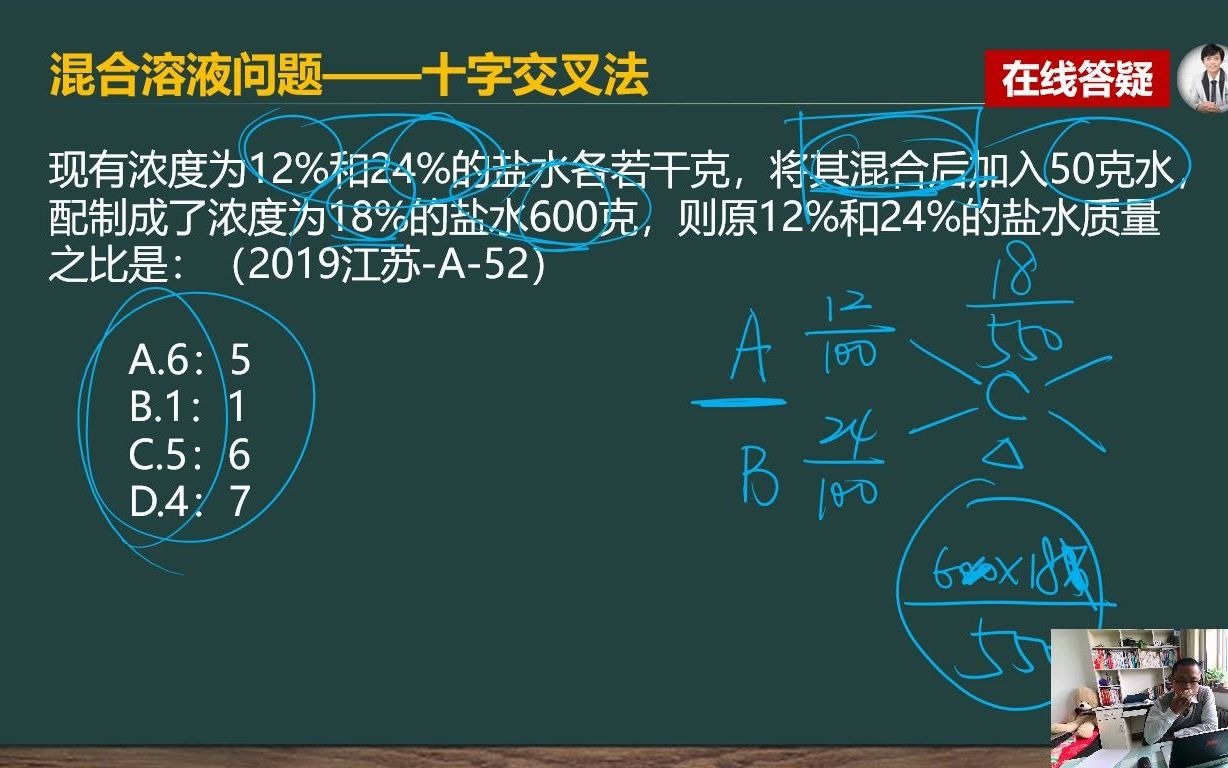 混合溶液问题——十字交叉法
在线答疑
现有浓度为12%和24%的盐水各若干克，将其混合后加入50克水，
配制成了浓度为18%的盐水600克，则原12%和24%的盐水质量
之比是：（2019江苏-A-52）
A.6：5
B.1：1
C.5：6
D.4：7
A
12
100
18
550
C
B
24
100
600×18
550